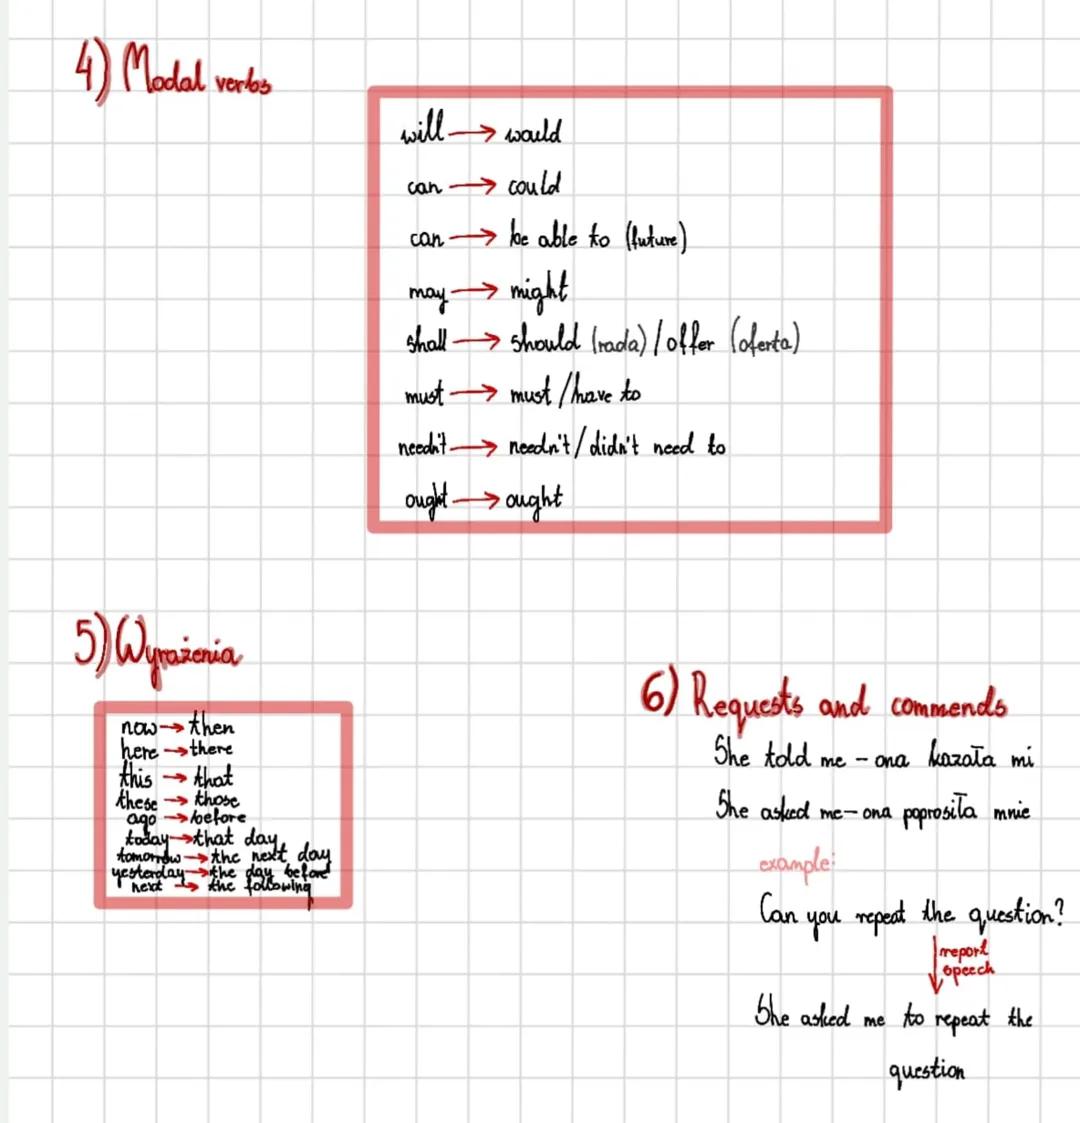 4) Modal verbs
will → would
can → could
can → be able to (future)
may → might
shall → should (rada) / offer (oferta)
must → must / have to
needn't → needn't / didn't need to
ought → ought
5) Wyrażenia
now → then
here → there
this → that
these → those
ago → before
today → that day
tomorrow → the next day
yesterday → the day before
next → the following
6) Requests and commends
She told me - ona kazała mi
She asked me - ona poprosiła mnie
example:
Can you repeat the question?
report
speech
She asked me to repeat the
question